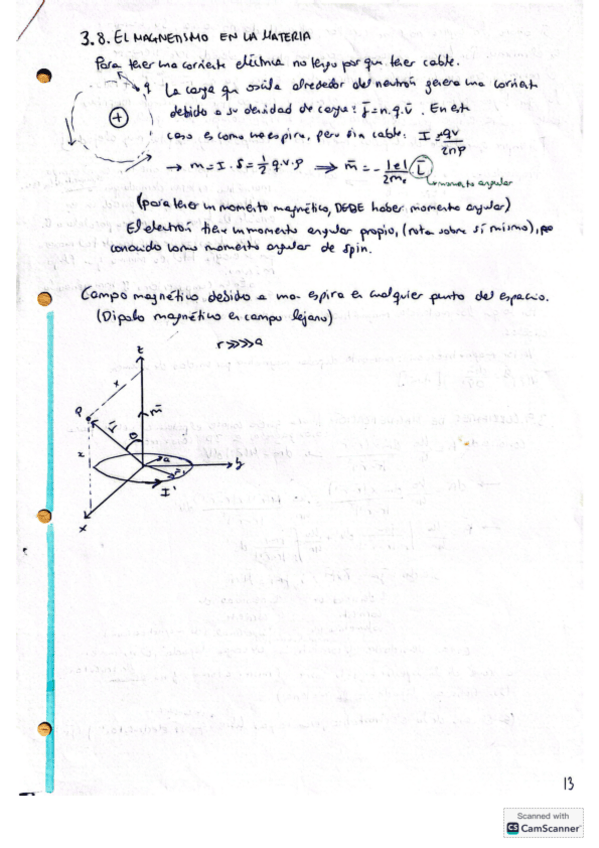 3.8. EL MAGNETISMO EN LA MATERIA
Para tener una corriente eléctrica no tengo por qué tener cable.
q La carga que oscila alrededor del neutrón genera una corriente
debido a su densidad de carga: J̄=n.q.v̄. En este
+ caso es como una espira, pero sin cable: I = qv/2πρ
→ m = I.S = 1/2 q.v.ρ ⇒ m̄ = - |e|/2mₑ L̄
momento angular
(para tener un momento magnético, DEBE haber momento angular)
El electrón tiene un momento angular propio, (rota sobre sí mismo),
conocido como momento angular de spin.
Campo magnético debido a una espira en cualquier punto del espacio.
(Dipolo magnético en campo lejano)
r>>>>a
z
x
P
m̄
r̄
θ
z
a
r̄'
y
I'
x
13
Scanned with
CS CamScanner